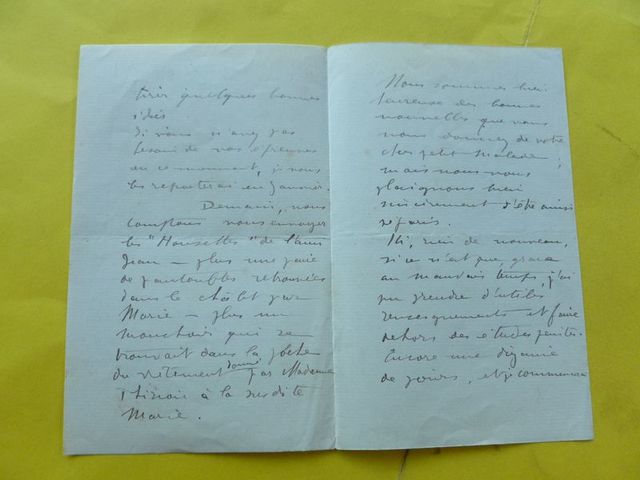 tirer quelques bonnes
idées
Si vous n'avez pas
besoin de vos épreuves
en ce moment, je vous
les reporterai en Janvier.
Demain, nous
comptons vous envoyer
les "Housettes" de l'ami
Jean — plus une paire
de pantoufles retrouvées
dans le châlet par
Marie — plus un
mouchoir qui se
trouvait dans la poche
du vêtement donné par Madame
à la susdite
Marie.
Nous sommes bien
heureux des bonnes
nouvelles que vous
nous donnez de votre
cher petit malade,
mais nous vous
plaignons bien
sincèrement d'être ainsi
séparés.
Ici, rien de nouveau,
si ce n'est que, grâce
au mauvais temps, j'ai
pu prendre d'utiles
renseignements et faire
dehors des études peintes.
Encore une dizaine
de jours, et je commencerai